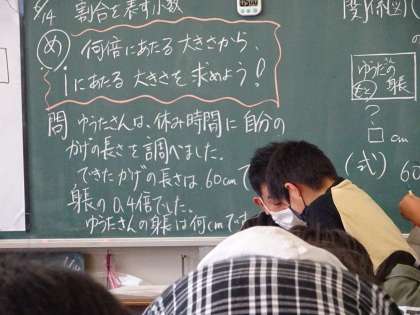 5/14 割合を表す小数
め 何倍にあたる大きさから、
1にあたる大きさを求めよう!
問 ゆうたさんは、休み時間に自分の
かげの長さを調べました。
できたかげの長さは60cmで
身長の0.4倍でした。
ゆうたさんの身長は何cmで
関係図
ゆうたの
身長
?
□cm
(式) 60